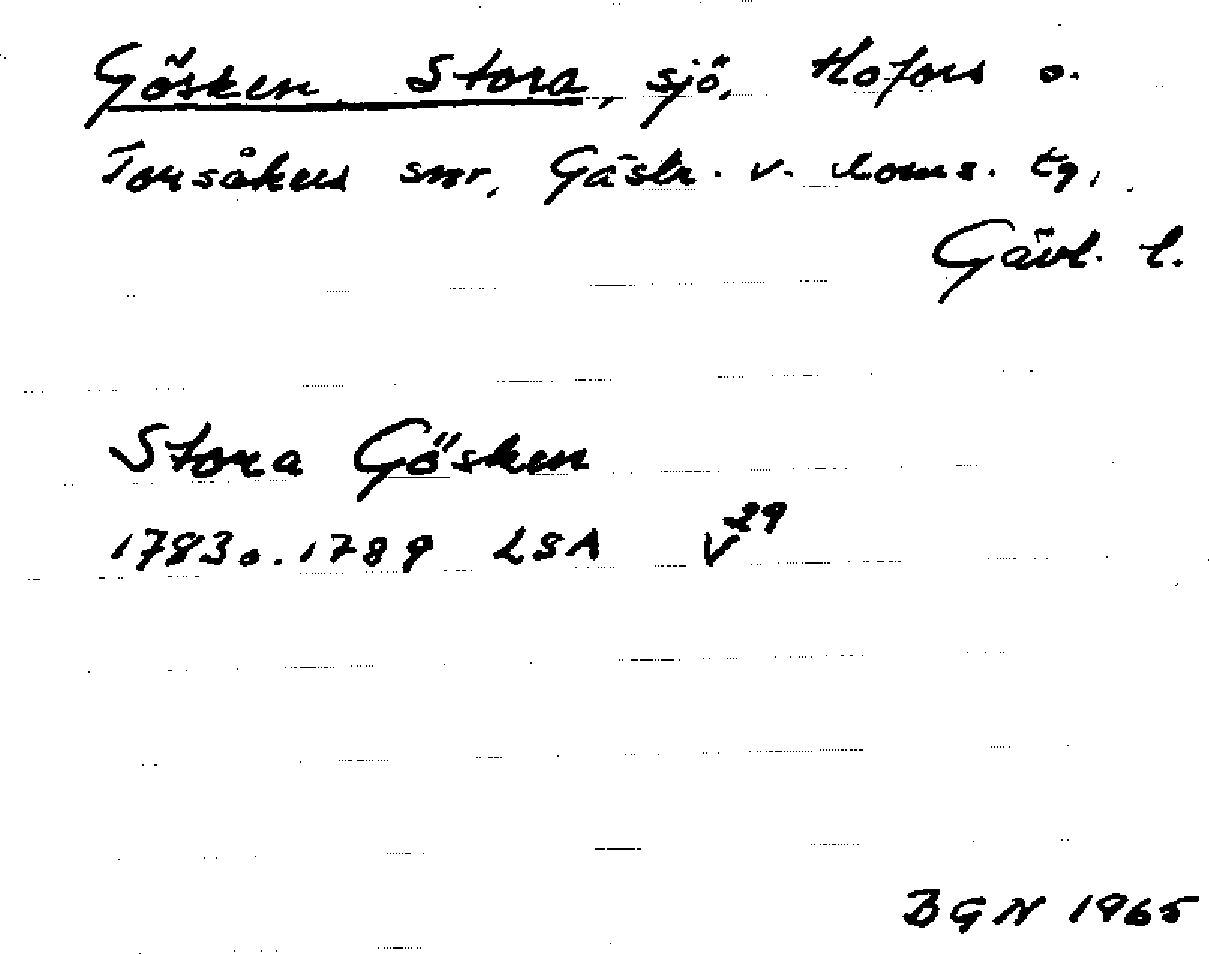 Gösken, Stora, sjö, Hofors o.
Torsåkers snr, Gästr. v. doms. tg,
Gävl. l.
Stora Gösken
1783 o. 1789 LSA V29
BGN 1965